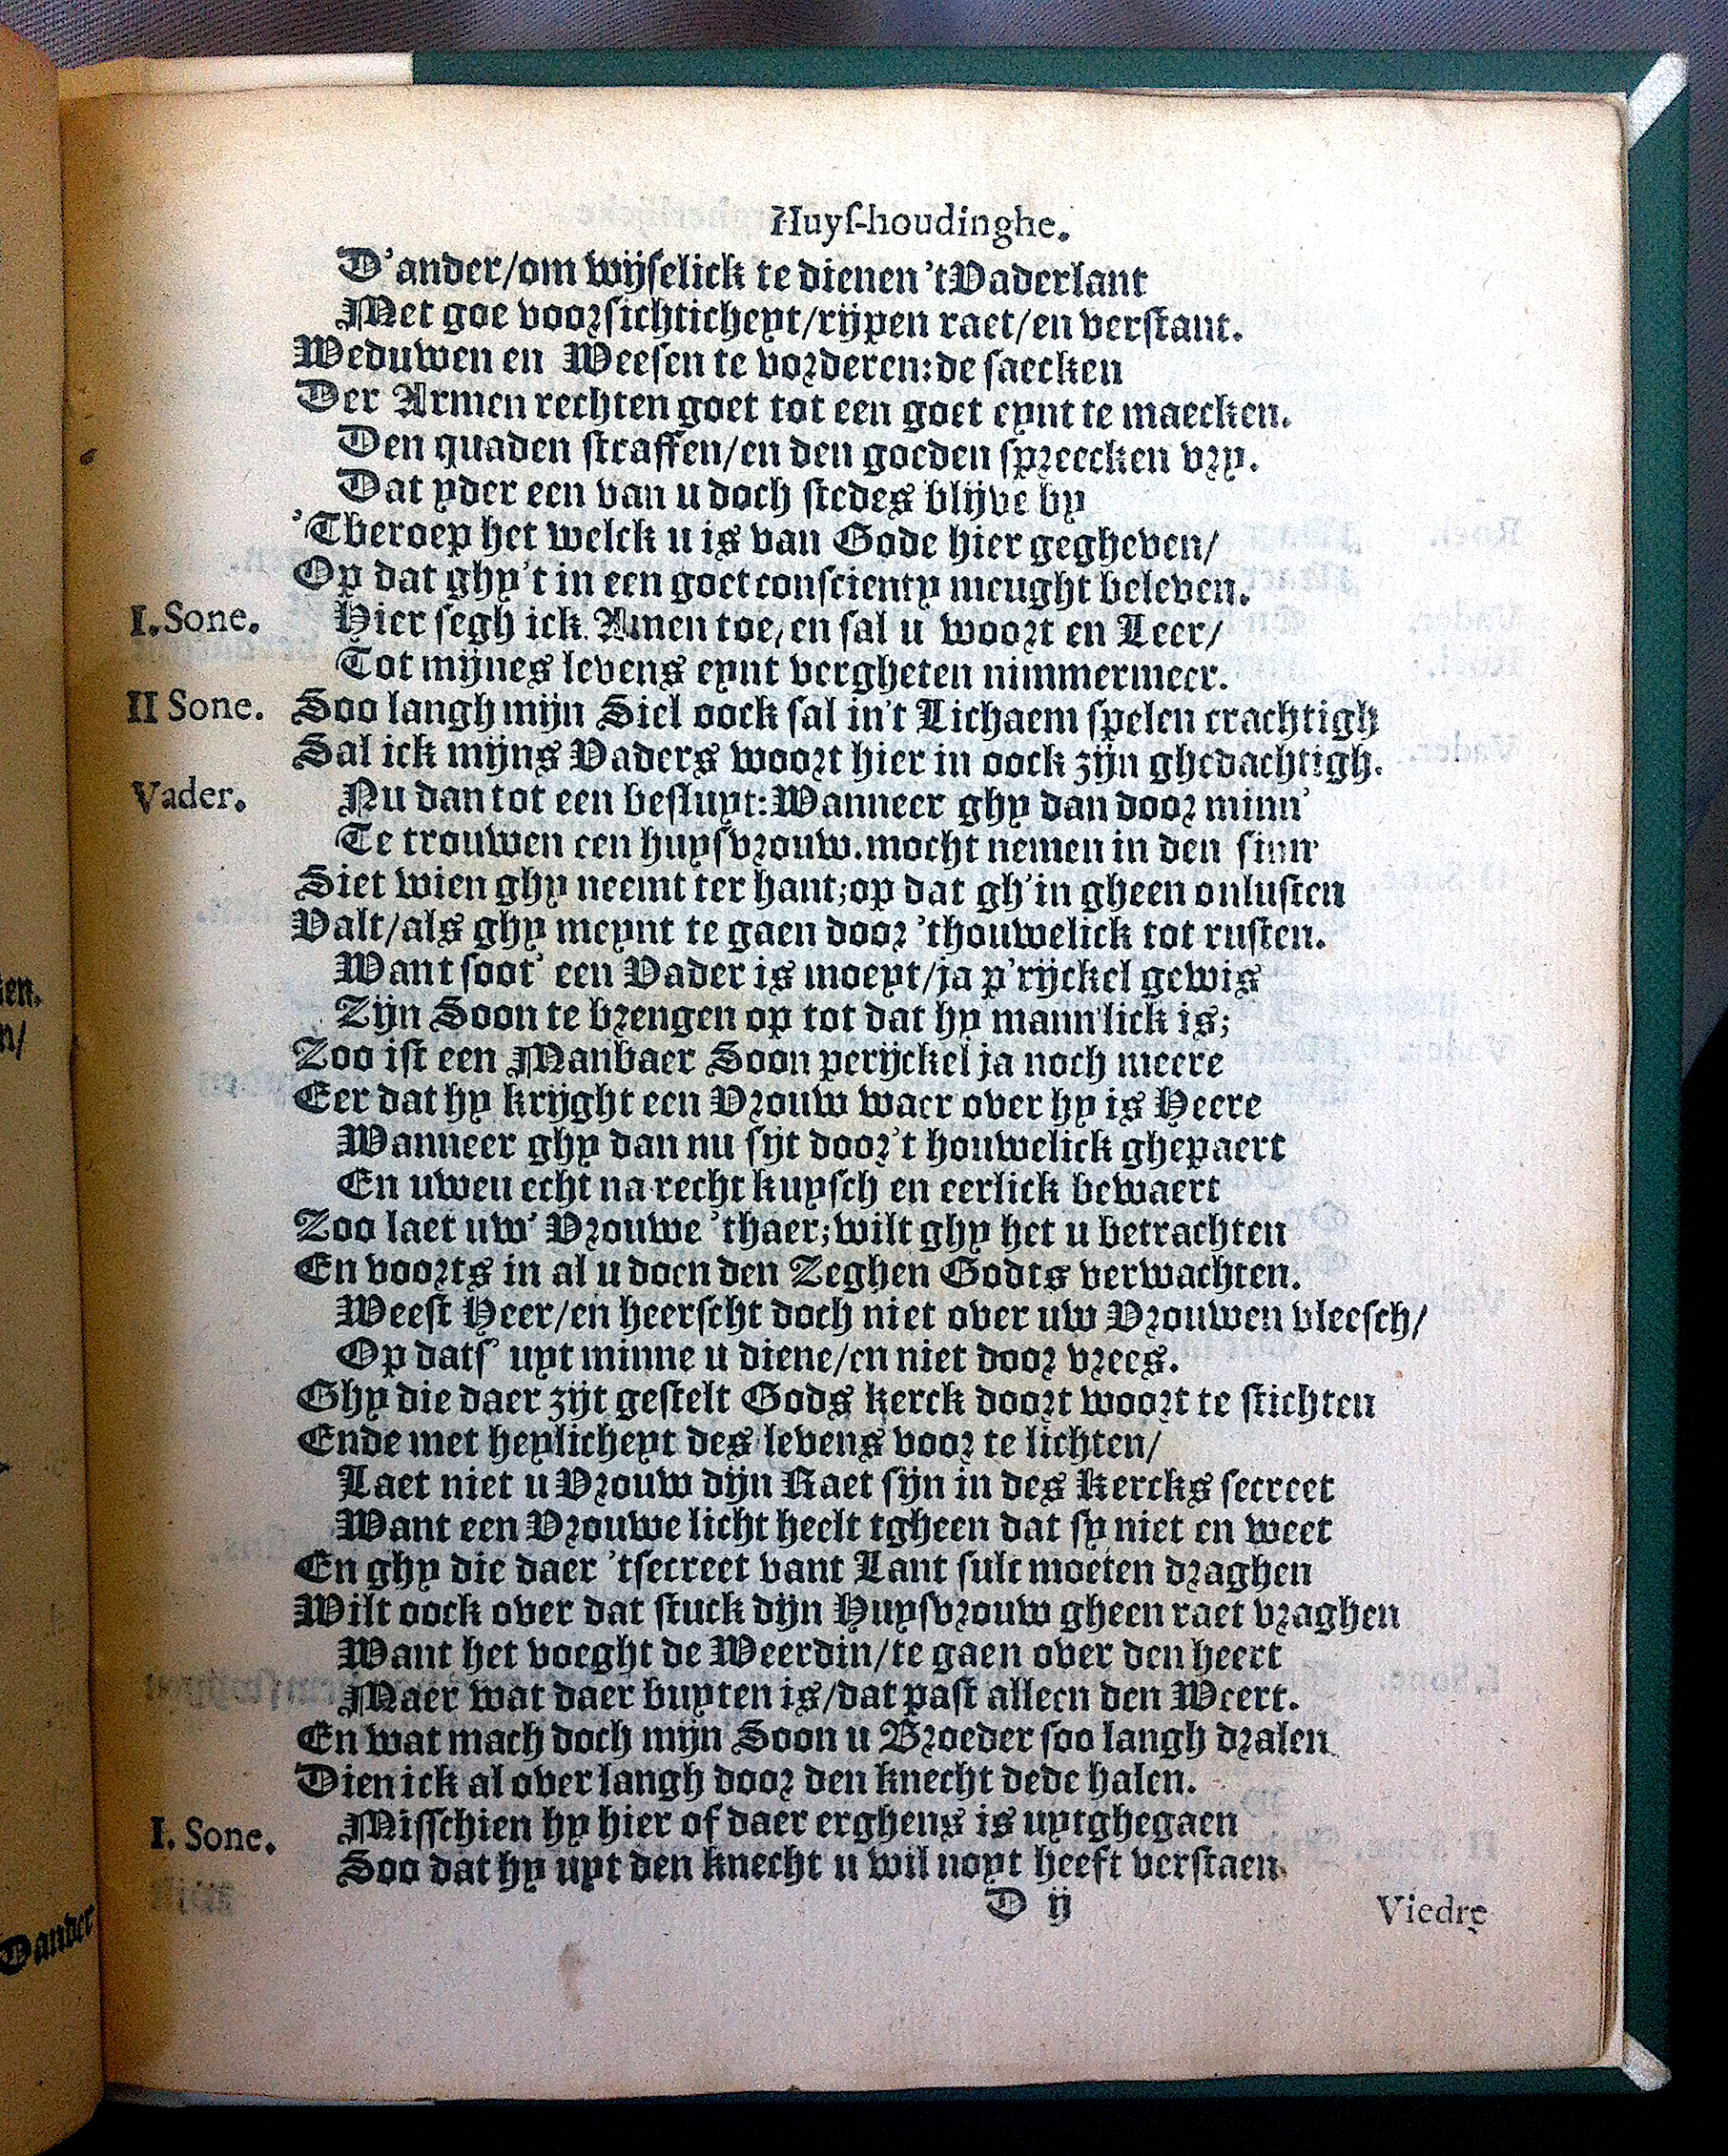 Huyſ-houdinghe.
D'ander/om wijſelick te dienen 'tVaderlant
Met goe voorſichticheyt/rijpen raet/en verſtant.
Weduwen en Weeſen te vorderen:de ſaecken
Der Armen rechten goet tot een goet eynt te maecken.
Den quaden ſtraffen/en den goeden ſpreecken vry.
Dat yder een van u doch ſtedes blijve by
'Tberoep het welck u is van Gode hier gegheven/
Op dat ghy't in een goet conſcienty meught beleven.
I.Sone. Hier ſegh ick Amen toe, en ſal u woort en Leer/
Tot mijnes levens eynt vergheten nimmermeer.
II Sone. Soo langh mijn Siel oock ſal in't Lichaem ſpelen crachtigh
Sal ick mijns Vaders woort hier in oock zijn ghedachtigh.
Vader. Nu dan tot een beſluyt:Wanneer ghy dan door minn'
Te trouwen een huyſvrouw.mocht nemen in den ſinn'
Siet wien ghy neemt ter hant;op dat gh'in gheen onluſten
Valt/als ghy meynt te gaen door 'thouwelick tot ruſten.
Want ſoot' een Vader is moeyt/ja p'rijckel gewis
Zijn Soon te brengen op tot dat hy mann'lick is;
Zoo iſt een Manbaer Soon perijckel ja noch meere
Eer dat hy krijght een Vrouw waer over hy is Heere
Wanneer ghy dan nu ſijt door't houwelick ghepaert
En uwen echt na recht kuyſch en eerlick bewaert
Zoo laet uw' Vrouwe 'thaer;wilt ghy het u betrachten
En voorts in al u doen den Zeghen Godts verwachten.
Weeſt Heer/en heerſcht doch niet over uw Vrouwen vleeſch/
Op datſ' uyt minne u diene/en niet door vrees.
Ghy die daer zijt geſtelt Gods kerck doort woort te ſtichten
Ende met heylicheyt des levens voor te lichten/
Laet niet u Vrouw dijn Raet ſijn in des Kercks ſecreet
Want een Vrouwe licht heelt tgheen dat ſy niet en weet
En ghy die daer 'tſecreet vant Lant ſult moeten draghen
Wilt oock over dat ſtuck dijn Huyſvrouw gheen raet vraghen
Want het voeght de Weerdin/te gaen over den heert
Maer wat daer buyten is/dat paſt alleen den Weert.
En wat mach doch mijn Soon u Broeder ſoo langh dralen
Dien ick al over langh door den knecht dede halen.
I. Sone. Miſſchien hy hier of daer erghens is uytghegaen
Soo dat hy uyt den knecht u wil noyt heeft verſtaen.
D ij
Viedre
en.
n/
Dander